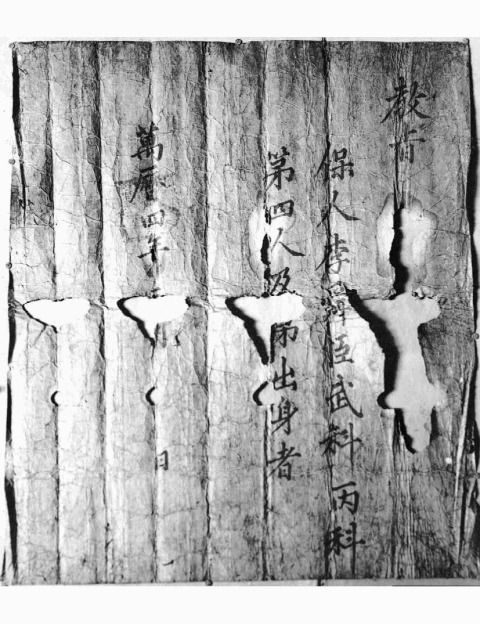 教旨
保人李舜臣武科丙科
第四人及第出身者
萬曆四年 月 日